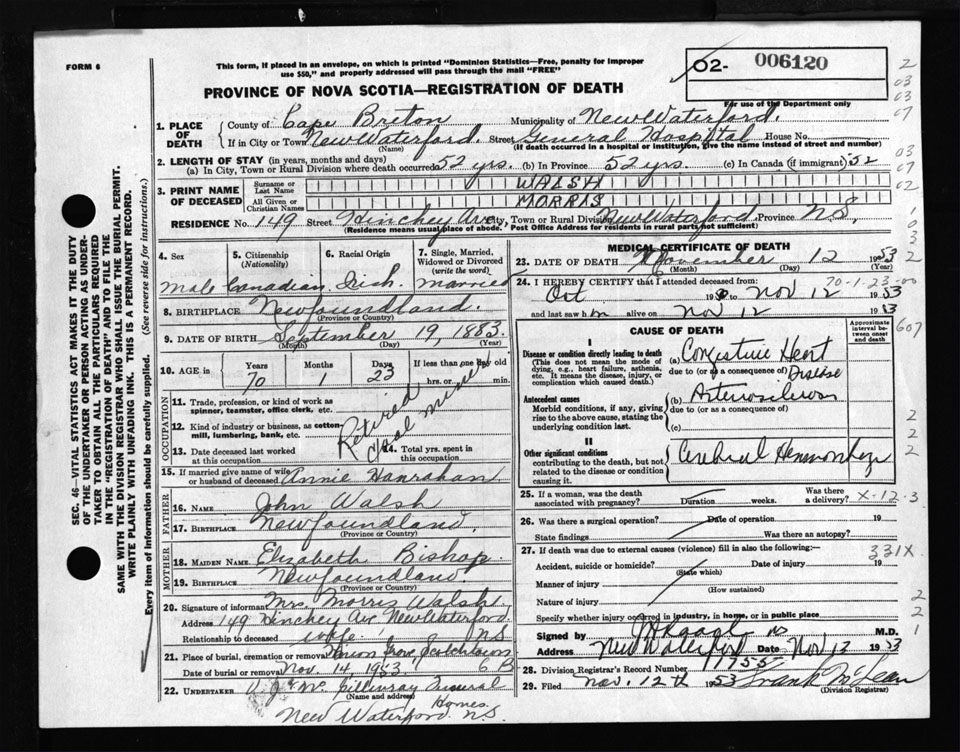 FORM 6
This form, if placed in an envelope, on which is printed "Dominion Statistics—Free, penalty for improper
use $50," and properly addressed will pass through the mail "FREE"
02- 006120
For use of the Department only
PROVINCE OF NOVA SCOTIA—REGISTRATION OF DEATH
1. PLACE OF DEATH
County of Cape Breton Municipality of New Waterford.
If in City or Town New Waterford. Street General Hospital House No.
(Name) (If death occurred in a hospital or institution, give the name instead of street and number)
2. LENGTH OF STAY (in years, months and days)
(a) In City, Town or Rural Division where death occurred 52 yrs. (b) In Province 52 yrs. (c) In Canada (if immigrant) 52
3. PRINT NAME OF DECEASED
Surname or Last Name WALSH
All Given or Christian Names MORRIS
RESIDENCE No. 149 Street Hinchey Ave City, Town or Rural Division New Waterford Province N.S.
(Residence means usual place of abode. Post Office Address for residents in rural parts not sufficient)
4. Sex
Male
5. Citizenship (Nationality)
Canadian
6. Racial Origin
Irish
7. Single, Married, Widowed or Divorced (write the word)
Married
8. BIRTHPLACE Newfoundland.
(Province or Country)
9. DATE OF BIRTH September 19, 1883.
(Month) (Day) (Year)
10. AGE in Years 70 Months 1 Days 23 If less than one day old
hrs. or min.
OCCUPATION
11. Trade, profession, or kind of work as spinner, teamster, office clerk, etc.
12. Kind of industry or business, as cotton-mill, lumbering, bank, etc.
Retired Coal Miner
13. Date deceased last worked at this occupation
14. Total yrs. spent in this occupation
15. If married give name of wife or husband of deceased Annie Hanrahan
FATHER
16. NAME John Walsh
17. BIRTHPLACE Newfoundland.
(Province or Country)
MOTHER
18. MAIDEN NAME Elizabeth Bishop
19. BIRTHPLACE Newfoundland.
(Province or Country)
20. Signature of informant Mrs. Morris Walsh
Address 149 Hinchey Ave New Waterford
Relationship to deceased wife NS
21. Place of burial, cremation or removal Scotchtown
Date of burial or removal Nov. 14, 1953 C B
22. UNDERTAKER Funeral Homes
(Name and address)
New Waterford N.S.
MEDICAL CERTIFICATE OF DEATH
23. DATE OF DEATH November 12 1953
(Month) (Day) (Year)
70-1-23-00
24. I HEREBY CERTIFY that I attended deceased from:
Oct 19 to Nov 12 1953
and last saw him alive on Nov 12 1953
CAUSE OF DEATH
Approximate interval between onset and death
I
Disease or condition directly leading to death
(This does not mean the mode of dying, e.g., heart failure, asthenia, etc. It means the disease, injury, or complication which caused death.)
(a) Congestive Heart Disease
due to (or as a consequence of)
Antecedent causes
Morbid conditions, if any, giving rise to the above cause, stating the underlying condition last.
(b) Arteriosclerosis
due to (or as a consequence of)
(c)
II
Other significant conditions
contributing to the death, but not related to the disease or condition causing it.
Cerebral Hemorrhage
25. If a woman, was the death associated with pregnancy? Duration weeks. Was there a delivery? X-12-3
26. Was there a surgical operation? Date of operation 19
State findings Was there an autopsy?
27. If death was due to external causes (violence) fill in also the following:— 331X
Accident, suicide or homicide? Date of injury 19
(State which)
Manner of injury
(How sustained)
Nature of injury
Specify whether injury occurred in industry, in home, or in public place
Signed by M.D.
Address New Waterford Date Nov 13 1953
28. Division Registrar's Record Number 1755
29. Filed Nov. 12th 1953 Frank McLean
(Division Registrar)
SEC. 46—VITAL STATISTICS ACT MAKES IT THE DUTY
OF THE UNDERTAKER OR PERSON ACTING AS UNDER-
TAKER TO OBTAIN ALL THE PARTICULARS REQUIRED
IN THE "REGISTRATION OF DEATH" AND TO FILE THE
SAME WITH THE DIVISION REGISTRAR WHO SHALL ISSUE THE BURIAL PERMIT.
WRITE PLAINLY WITH UNFADING INK. THIS IS A PERMANENT RECORD.
Every item of information should be carefully supplied. (See reverse side for instructions.)
2
03
03
07
03
07
02
1
03
2
2
607
2
2
2
2
2
1